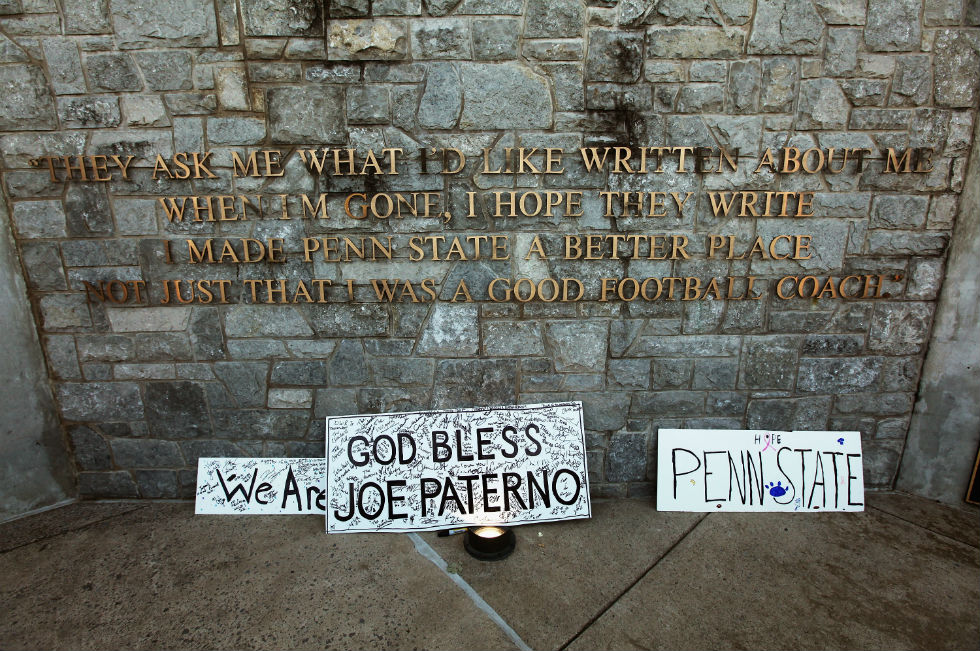 "THEY ASK ME WHAT I'D LIKE WRITTEN ABOUT ME
WHEN I'M GONE, I HOPE THEY WRITE
I MADE PENN STATE A BETTER PLACE
NOT JUST THAT I WAS A GOOD FOOTBALL COACH."
We ARE
GOD BLESS
JOE PATERNO
HOPE
PENN STATE